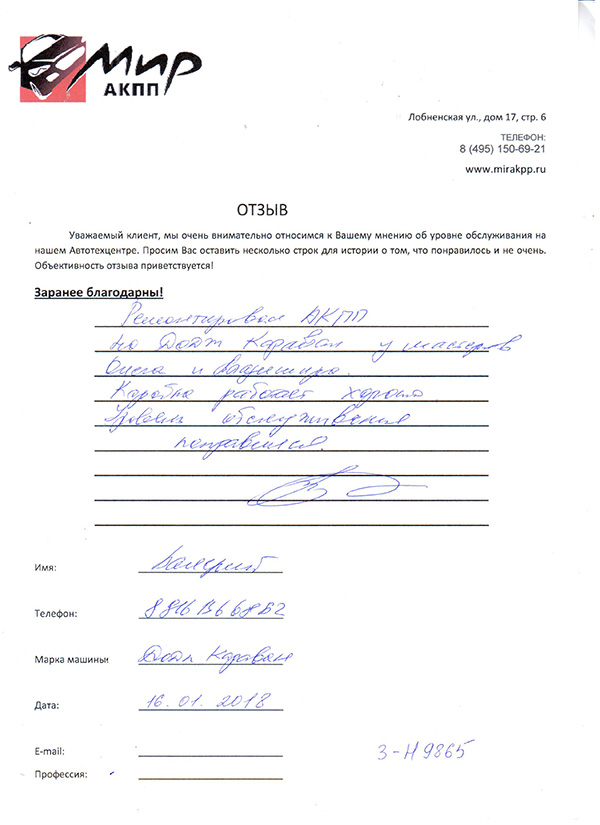 Мир
АКПП
Лобненская ул., дом 17, стр. 6
ТЕЛЕФОН:
8 (495) 150-69-21
www.mirakpp.ru
ОТЗЫВ
Уважаемый клиент, мы очень внимательно относимся к Вашему мнению об уровне обслуживания на
нашем Автотехцентре. Просим Вас оставить несколько строк для истории о том, что понравилось и не очень.
Объективность отзыва приветствуется!
Заранее благодарны!
Ремонтировал АКПП
на Додж Караван у мастеров
Олега и Владимира.
Коробка работает хорошо
Уровень обслуживания
понравился.
Имя: Валерий
Телефон:
Марка машины: Додж Караван
Дата: 16.01.2018
E-mail:
Профессия:
3-Н9865